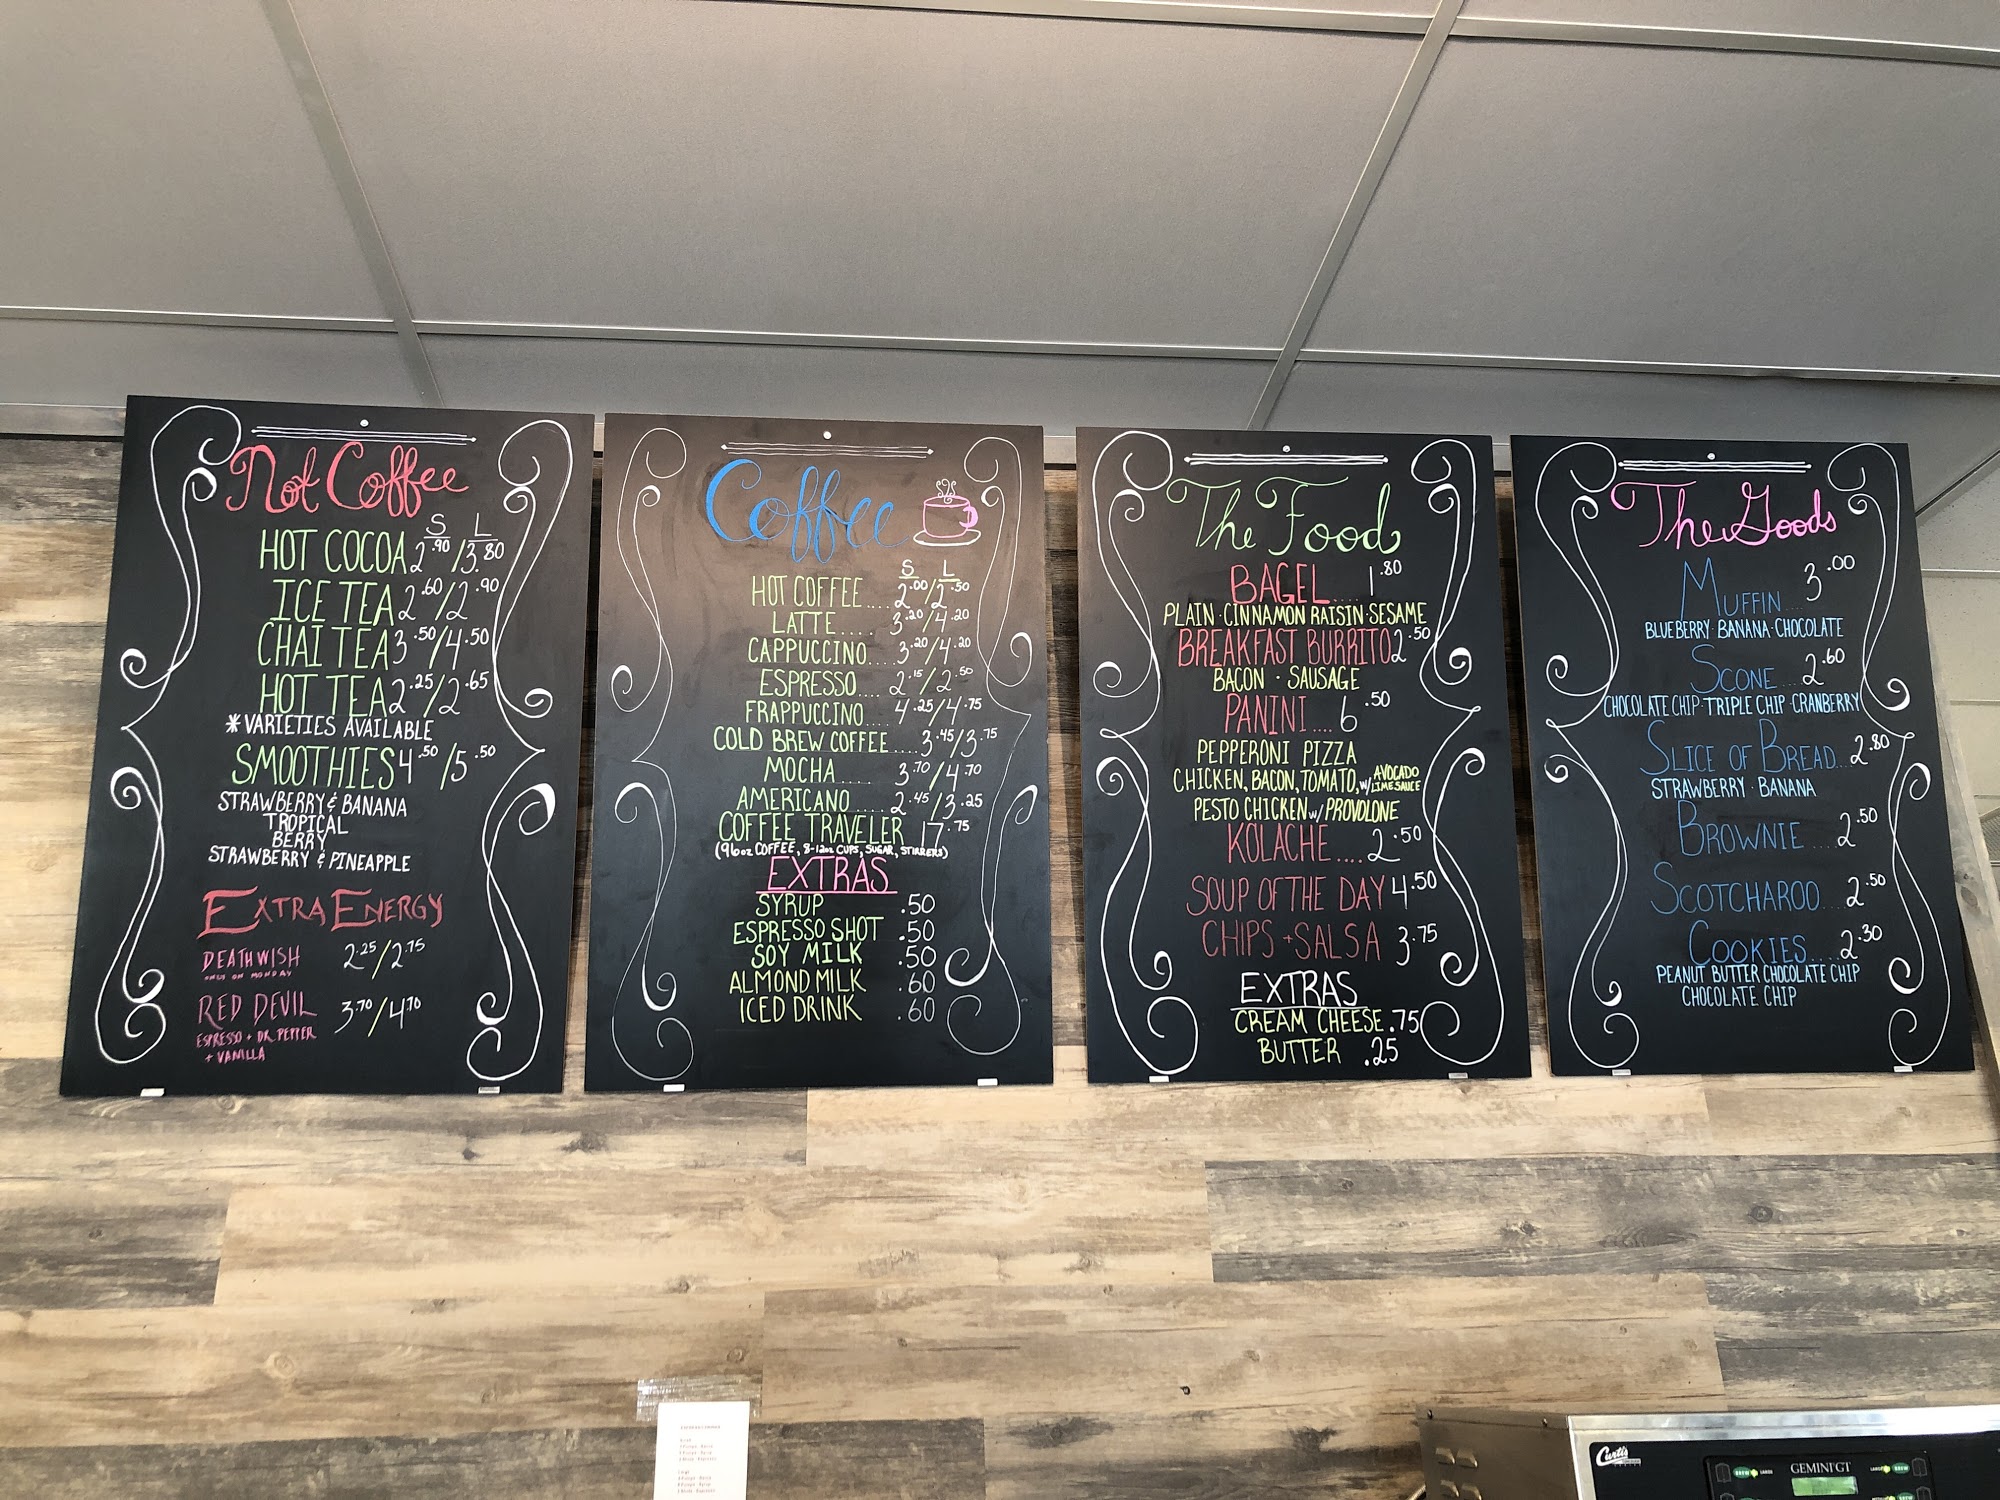 Not Coffee
S L
HOT COCOA 2.90/3.80
ICE TEA 2.60/2.90
CHAI TEA 3.50/4.50
HOT TEA 2.25/2.65
*VARIETIES AVAILABLE
SMOOTHIES 4.50/5.50
STRAWBERRY & BANANA
TROPICAL
BERRY
STRAWBERRY & PINEAPPLE
EXTRA ENERGY
DEATHWISH 2.25/2.75
ONLY ON MONDAY
RED DEVIL 3.70/4.70
ESPRESSO + DR. PEPPER
+ VANILLA
Coffee
S L
HOT COFFEE.... 2.00/2.50
LATTE.... 3.20/4.20
CAPPUCCINO.... 3.20/4.20
ESPRESSO.... 2.15/2.50
FRAPPUCCINO.... 4.25/4.75
COLD BREW COFFEE.... 3.45/3.75
MOCHA..... 3.70/4.70
AMERICANO..... 2.45/3.25
COFFEE TRAVELER 17.75
(96oz COFFEE, 8-12oz CUPS, SUGAR, STIRRERS)
EXTRAS
SYRUP .50
ESPRESSO SHOT .50
SOY MILK .50
ALMOND MILK .60
ICED DRINK .60
The Food
BAGEL.... 1.80
PLAIN · CINNAMON RAISIN · SESAME
BREAKFAST BURRITO 2.50
BACON · SAUSAGE
PANINI.... 6.50
PEPPERONI PIZZA
CHICKEN, BACON, TOMATO, w/ AVOCADO LIME SAUCE
PESTO CHICKEN w/ PROVOLONE
KOLACHE.... 2.50
SOUP OF THE DAY 4.50
CHIPS + SALSA 3.75
EXTRAS
CREAM CHEESE .75
BUTTER .25
The Goods
MUFFIN.... 3.00
BLUEBERRY · BANANA · CHOCOLATE
SCONE... 2.60
CHOCOLATE CHIP · TRIPLE CHIP · CRANBERRY
SLICE OF BREAD... 2.80
STRAWBERRY · BANANA
BROWNIE.... 2.50
SCOTCHAROO... 2.50
COOKIES.... 2.30
PEANUT BUTTER CHOCOLATE CHIP
CHOCOLATE CHIP
Curtis
GEMINI GT
BREW
BREW